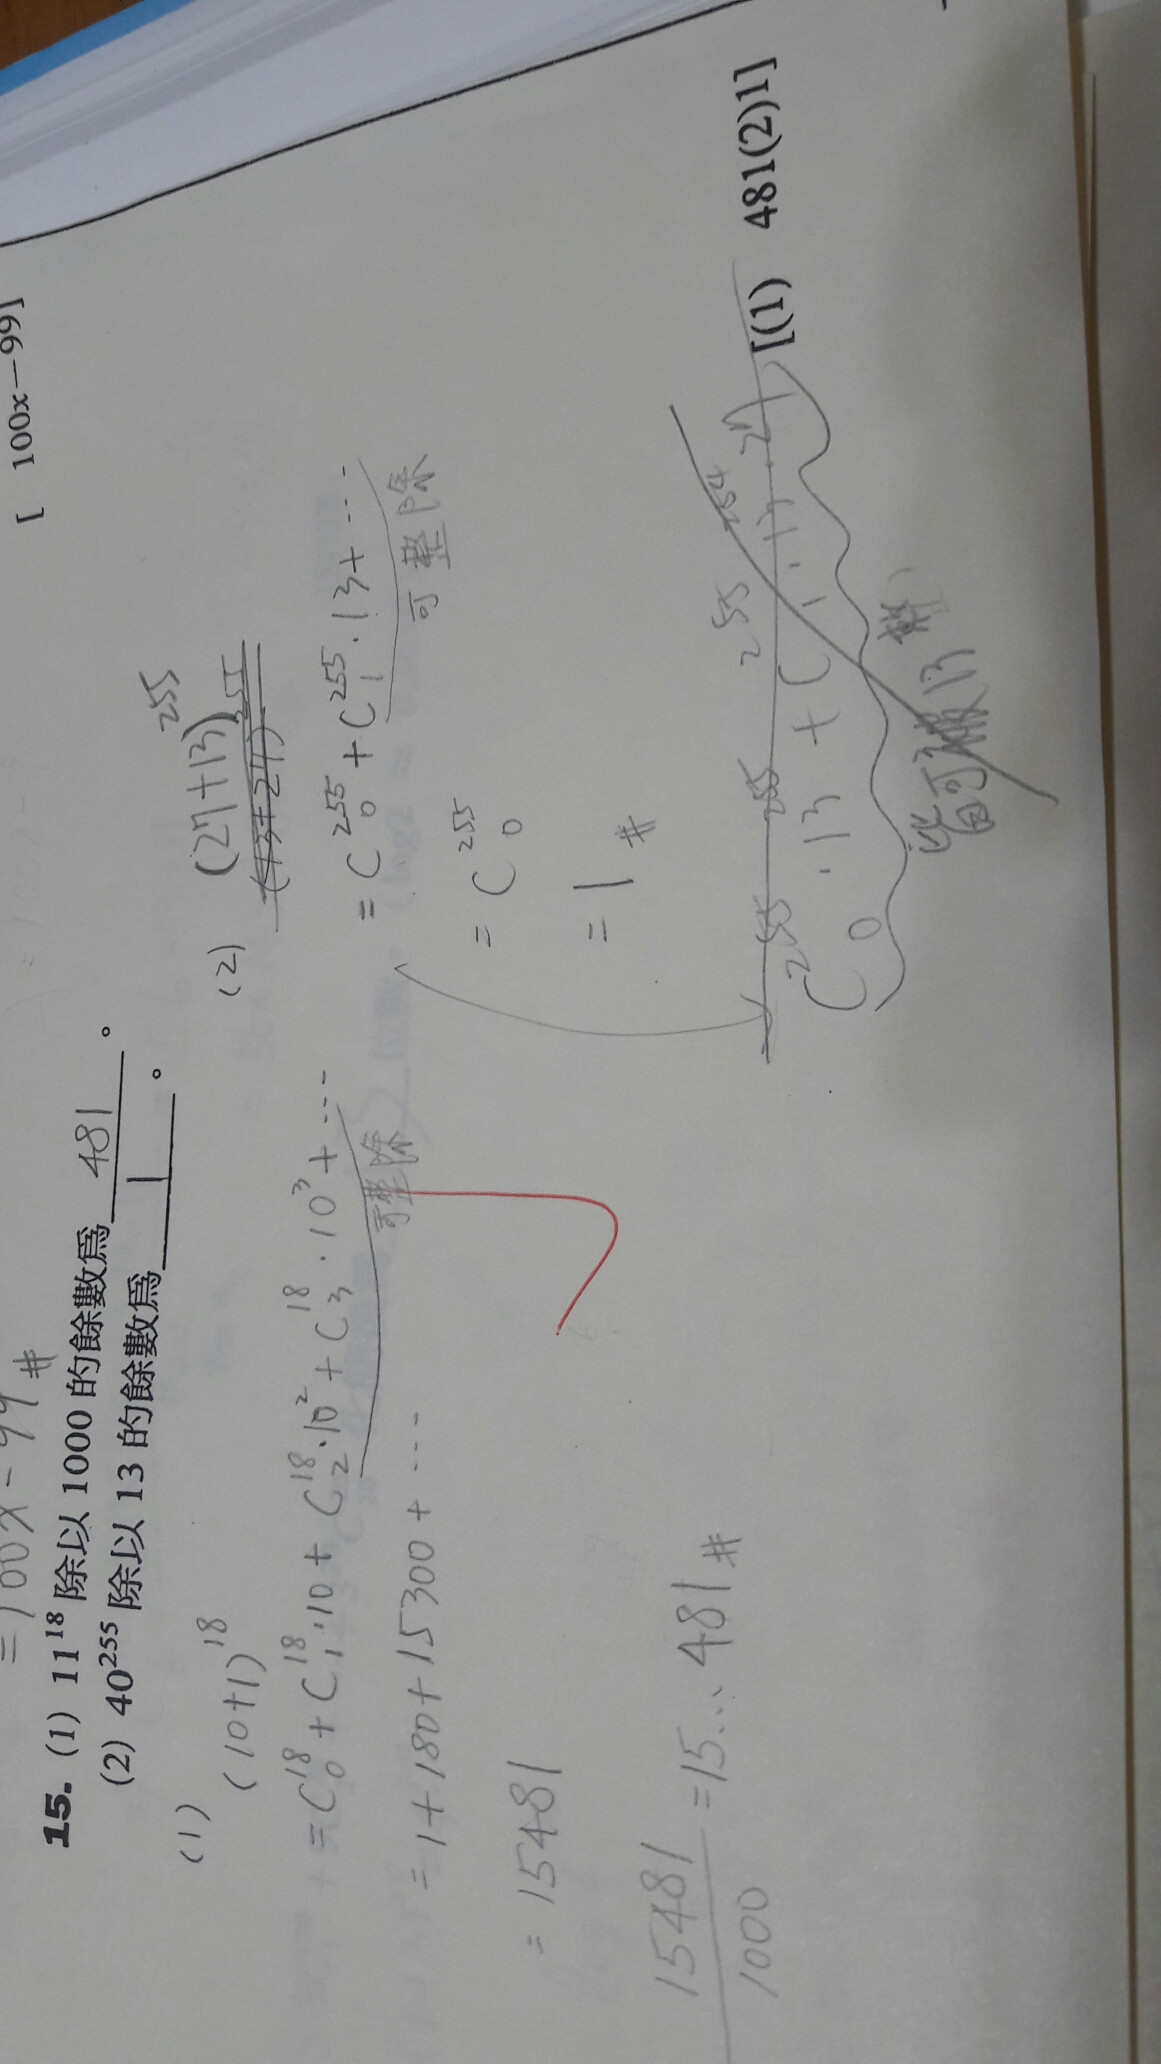 [ 100x－99]
=100x-99 #
15. (1) 11¹⁸ 除以 1000 的餘數爲 481 。
(2) 40²⁵⁵ 除以 13 的餘數爲 1 。
(1)
(10+1)¹⁸
=C¹⁸₀+C¹⁸₁·10+C¹⁸₂·10²+C¹⁸₃·10³+...
可整除
=1+180+15300+...
=15481
15481/1000=15...481#
(2) (27+13)²⁵⁵
(13+27)²⁵⁵
=C²⁵⁵₀+C²⁵⁵₁·13+...
可整除
=C²⁵⁵₀
=1 #
C²⁵⁵₀·13²⁵⁵+C²⁵⁵₁·13²⁵⁴·27
皆可被13
[(1) 481(2)1]